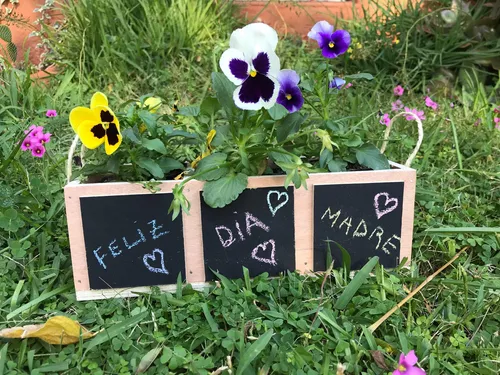 FELIZ
DiA
MADRE